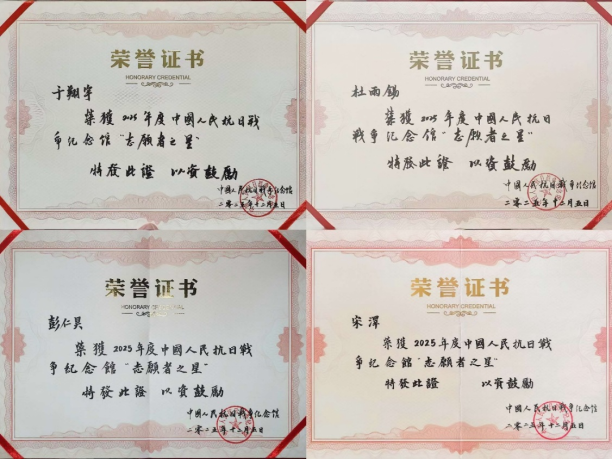 荣誉证书
HONORARY CREDENTIAL
于翔宇
榮獲2025年度中國人民抗日戰
爭纪念館"志願者之星"
特發此證 以資鼓勵
中國人民抗日戰争纪念馆
二〇二五年十二月五日
荣誉证书
HONORARY CREDENTIAL
杜雨錫
榮獲2025年度中國人民抗日
戰争纪念館"志願者之星"
特發此證 以资鼓勵
中國人民抗日戰争纪念館
二〇二五年十二月五日
荣誉证书
HONORARY CREDENTIAL
彭仁昊
榮獲2025年度中國人民抗日戰
爭纪念館"志願者之星"
特發此證 以资鼓勵
中國人民抗日戰争纪念館
二〇二五年十二月五日
荣誉证书
HONORARY CREDENTIAL
宋澤
榮獲2025年度中國人民抗日戰
爭纪念館"志願者之星"
特發此證 以資鼓勵
中國人民抗日戰争纪念館
二〇二五年十二月五日